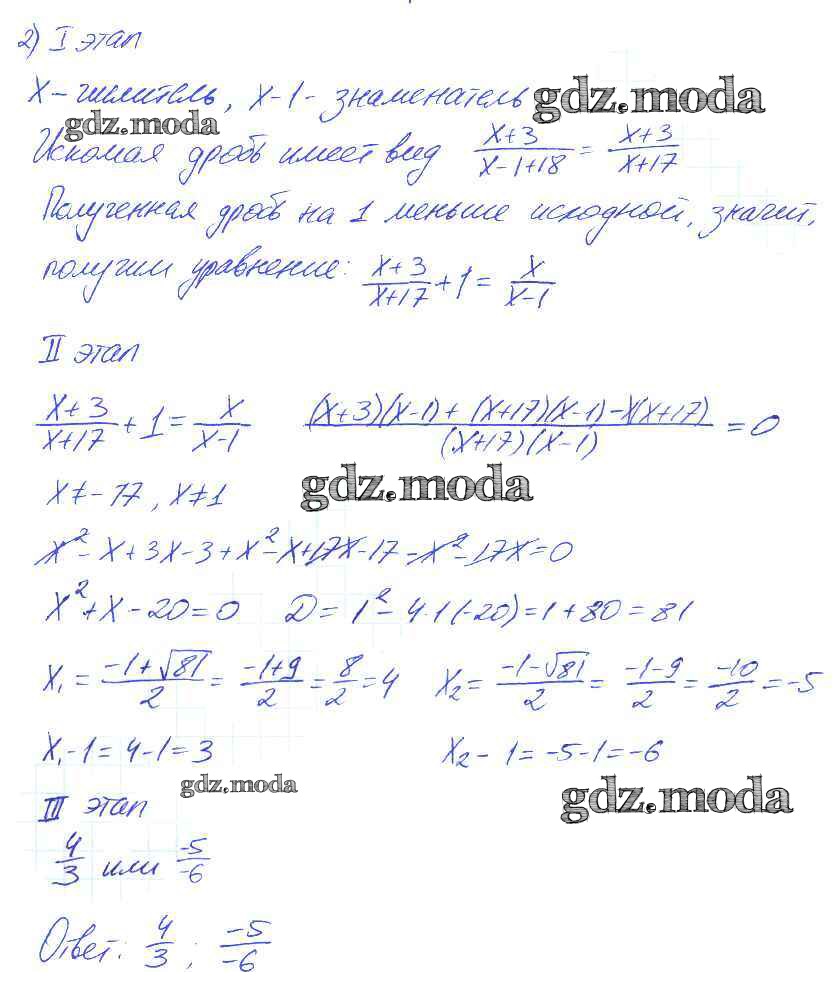 2) I этап
x – числитель, x-1 - знаменатель gdz.moda
gdz.moda
Искомая дробь имеет вид (x+3)/(x-1+18) = (x+3)/(x+17)
Полученная дробь на 1 меньше исходной, значит,
получим уравнение: (x+3)/(x+17) + 1 = x/(x-1)
II этап
(x+3)/(x+17) + 1 = x/(x-1) ((x+3)(x-1) + (x+17)(x-1) - x(x+17))/((x+17)(x-1)) = 0
x ≠ -17, x ≠ 1 gdz.moda
x² - x + 3x - 3 + x² - x + 17x - 17 - x² - 17x = 0
x² + x - 20 = 0 D = 1² - 4·1(-20) = 1 + 80 = 81
x₁ = (-1+√81)/2 = (-1+9)/2 = 8/2 = 4 x₂ = (-1-√81)/2 = (-1-9)/2 = -10/2 = -5
x₁ - 1 = 4 - 1 = 3 x₂ - 1 = -5 - 1 = -6
gdz.moda gdz.moda
III этап
4/3 или -5/-6
Ответ: 4/3 ; -5/-6